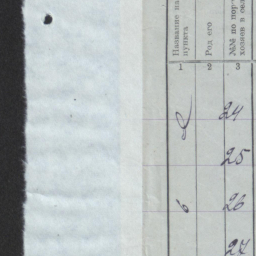 Название на
пункта
Род его
№№ по пор
хозяев в се
1 2 3
24
25
6 26
27